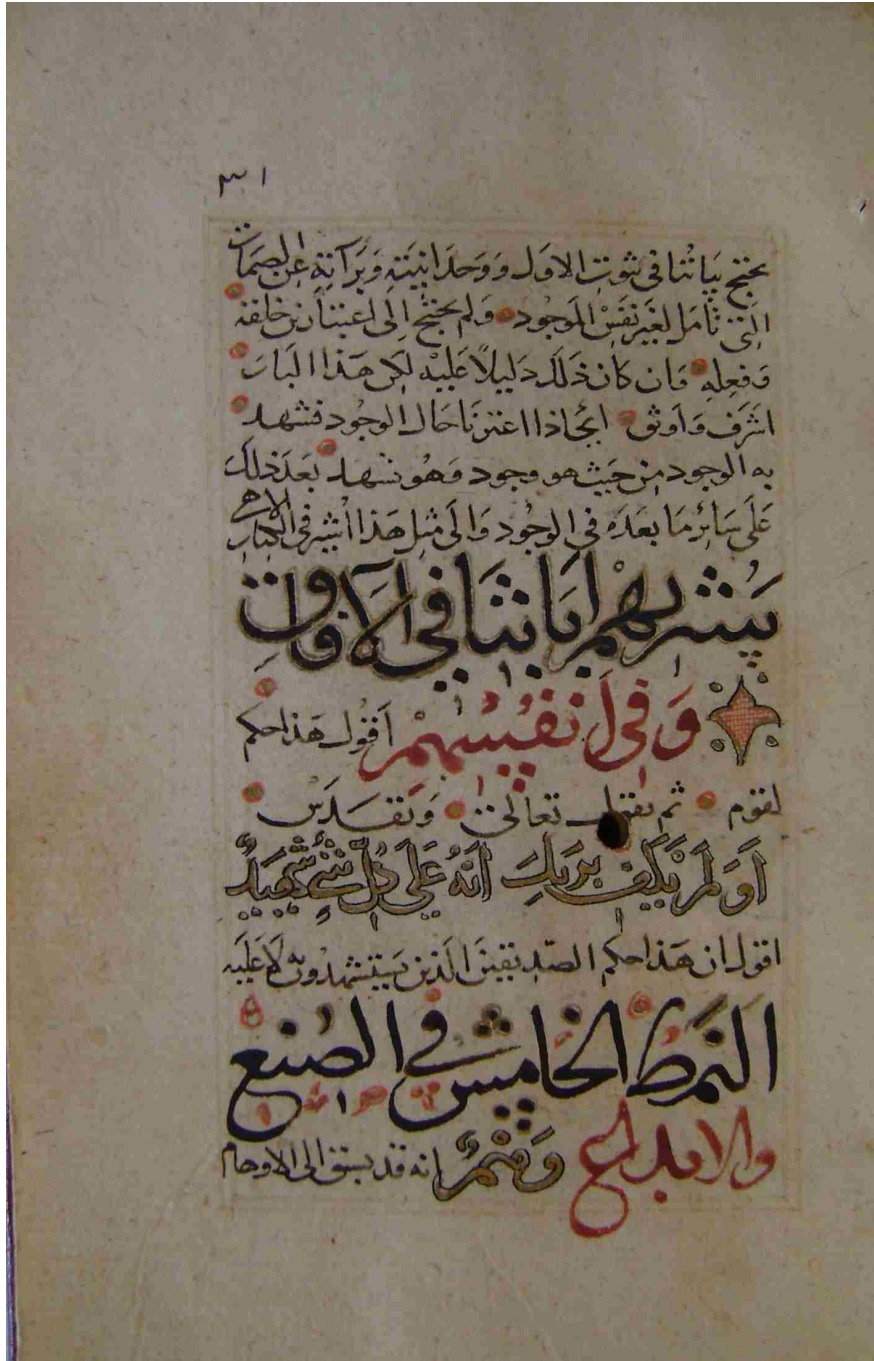 ٣١
يحتج بياننا في ثبوت الاول ووحدانيته وبرآته عن الصمات
التى تامل لغير نفس الموجود ولم يحتج الى اعتبار من خلقه
وفعله وان كان ذلك دليلاً عليه لكن هذا الباب
اشرف واوثق اى اذا اعتبرنا حال الوجود فشهد
به الوجود من حيث هو وجود وهو شهد بعد ذلك
على سائر ما بعده فى الوجود والى مثل هذا اشير فى الكتاب الالاهى
سنريهم اياتنا في الآفاق
وفي انفسهم اقول هذا حكم
لقوم ثم يقول تعالى وتقدس
اولم يكف بربك انه على كل شئ شهيد
اقول ان هذا حكم الصديقين الذين يستشهدون به لا عليه
النمط الخامس في الصنع
والابداع وهم انه قد يسبق الى الاوهام